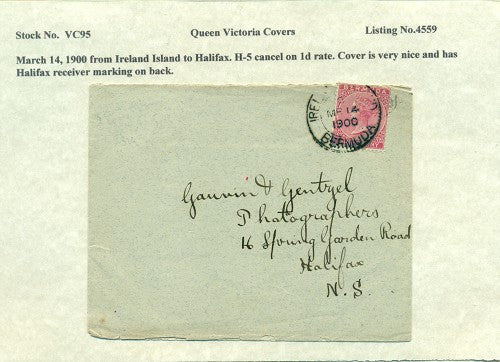 Stock No. VC95 Queen Victoria Covers Listing No.4559
March 14, 1900 from Ireland Island to Halifax. H-5 cancel on 1d rate. Cover is very nice and has
Halifax receiver marking on back.
BERMUDA
MR 14
1900
BERMUDA
Gauvin & Gentzel
Photographers
16 Spring Garden Road
Halifax
N. S.